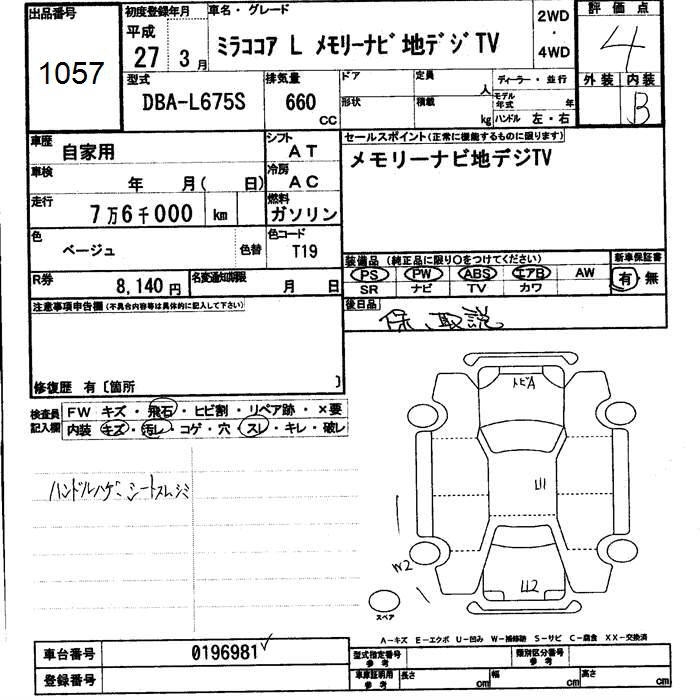 出品番号
1057
初度登録年月
平成
27 3月
車名・グレード
ミラココア L メモリーナビ 地デジTV
2WD
・
4WD
評価点
4
外装 内装
B
型式
DBA-L675S
排気量
660
CC
ドア
定員
人
形状
積載
kg
ディーラー・並行
モデル年式
年
ハンドル 左・右
車歴
自家用
シフト
AT
車検
年 月( 日)
冷房
AC
走行
7万6千000 km
燃料
ガソリン
色
ベージュ
色替
色コード
T19
R券
8,140円
名変通知期限
月 日
セールスポイント(正常に機能するものに限ります)
メモリーナビ地デジTV
装備品(純正品に限り○をつけてください)
新車保証書
PS PW ABS エアB AW
SR ナビ TV カワ
有・無
後日品
保、取説
注意事項申告欄(不具合内容等は具体的に記入して下さい)
修復歴 有〔箇所 〕
検査員
記入欄
FW キズ・飛石・ヒビ割・リペア跡・×要
内装 キズ・汚レ・コゲ・穴・スレ・キレ・破レ
ハンドルハゲ シートスレシミ
トビA
U1
U2
W2
スペア
A-キズ E-エクボ U-凹み W-補修跡 S-サビ C-腐食 XX-交換済
車台番号
0196981
登録番号
型式指定番号
参考
類別区分番号
参考
車庫証明用
参考
長さ
cm
幅
cm
高さ
cm